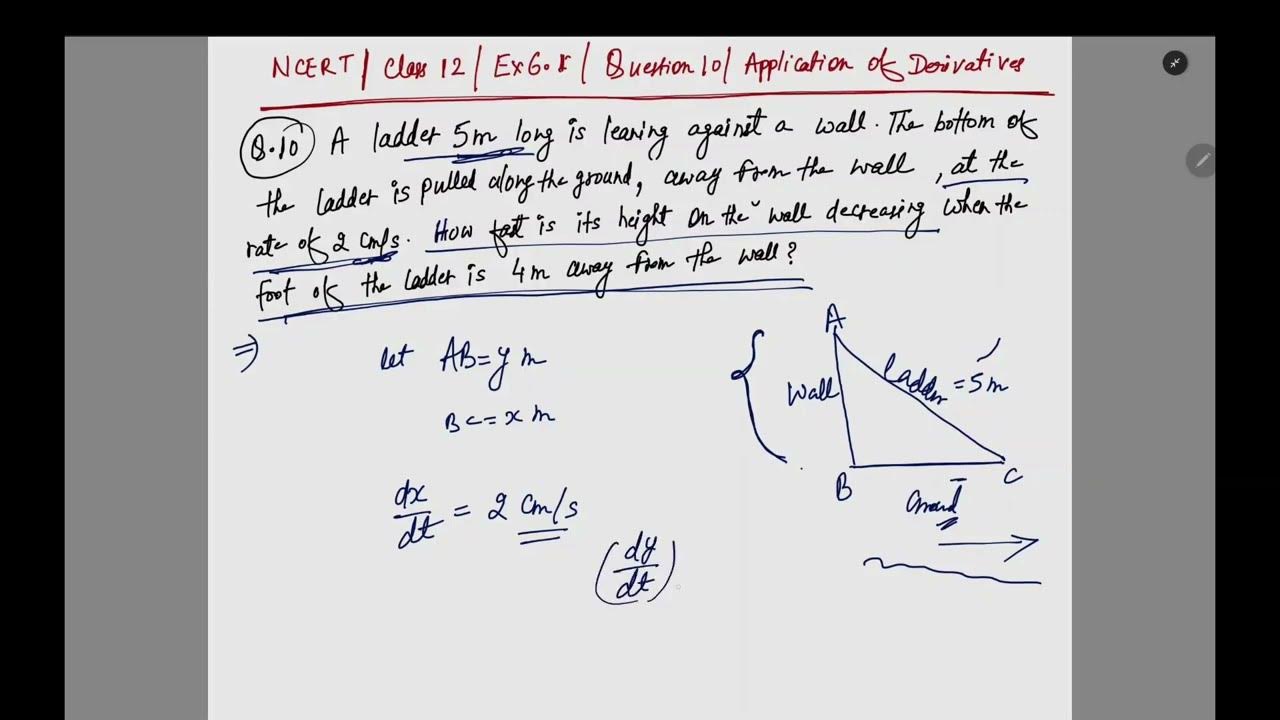 NCERT / Class 12 / Ex 6.1 / Question 10 / Application of Derivatives
Q.10 A ladder 5m long is leaning against a wall. The bottom of
the ladder is pulled along the ground, away from the wall, at the
rate of 2 cm/s. How fast is its height on the wall decreasing when the
foot of the ladder is 4m away from the wall?
⇒ let AB = y m
BC = x m
dx/dt = 2 cm/s
(dy/dt)
A
Wall
ladder = 5m
B
C
Ground